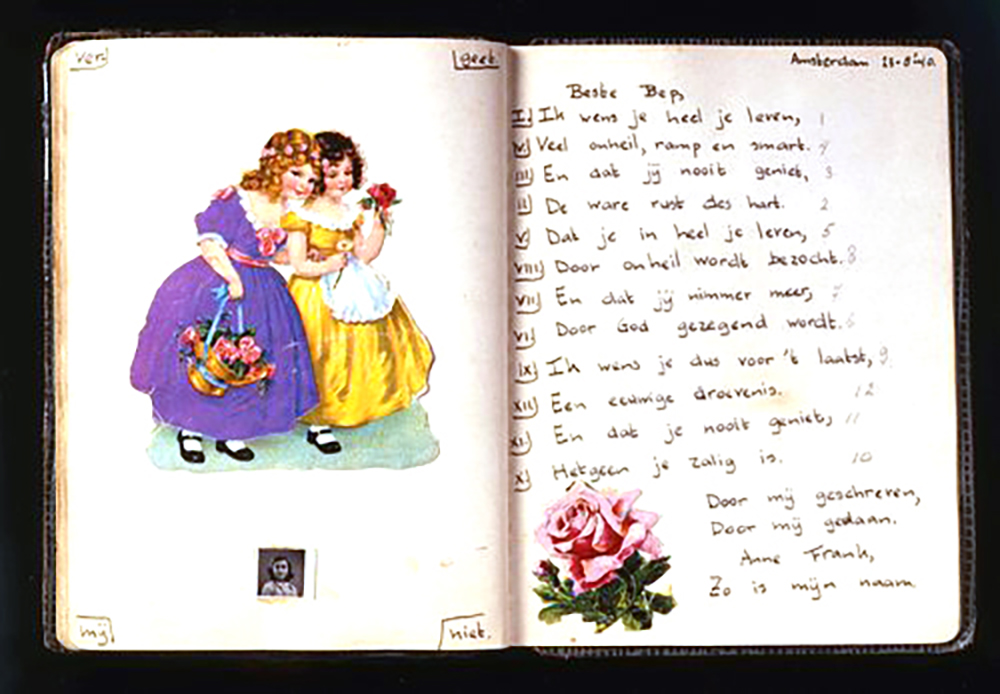 ver geet
mij niet.
Amsterdam
Beste Bep,
I. Ik wens je heel je leven, 1
IV. Veel onheil, ramp en smart. 4
III En dat jij nooit geniet, 3
II De ware rust des hart. 2
V. Dat je in heel je leven, 5
VIII Door onheil wordt bezocht. 8
VII En dat jij nimmer meer, 7
VI Door God gezegend wordt. 6
IX Ik wens je dus voor 't laatst, 9
XII Een eeuwige droevenis. 12
XI. En dat je nooit geniet, 11
X Hetgeen je zalig is. 10
Door mij geschreven,
Door mij gedaan.
Anne Frank,
Zo is mijn naam